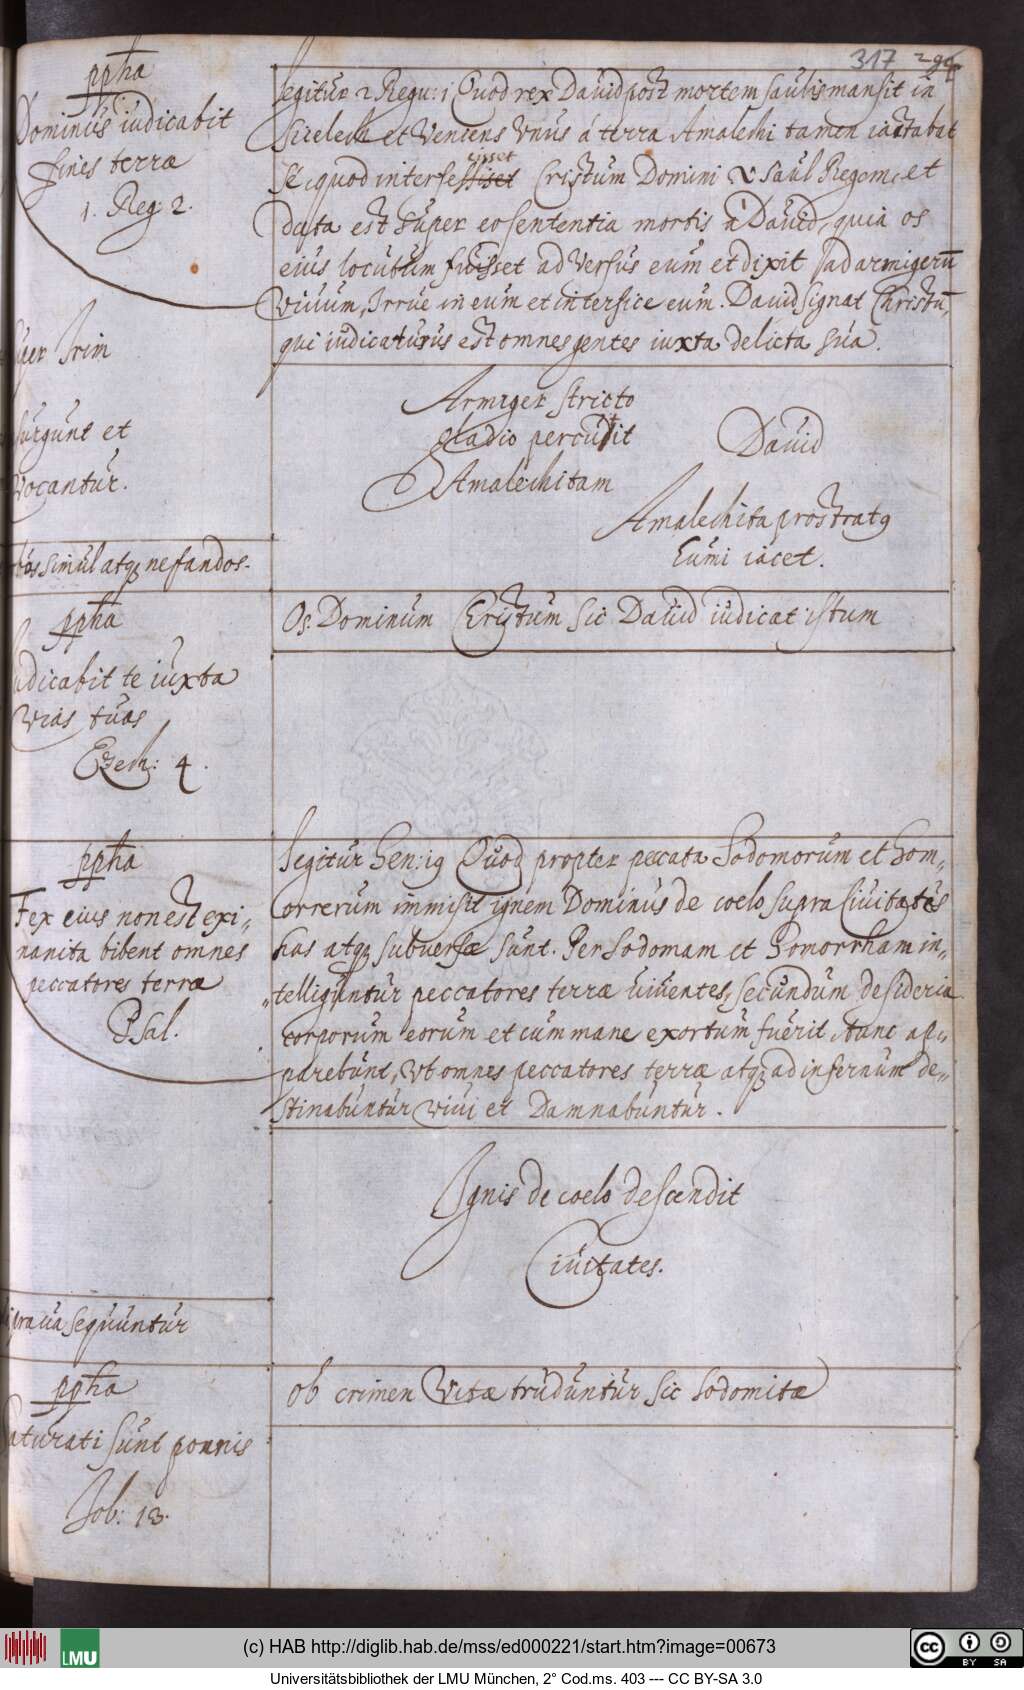 317 294
ppha
Dominus iudicabit
fines terræ
1. Reg: 2.
Legitur 2 Regu: 1 Quod rex Dauid post mortem Saulis mansit in
Sicelech et Veniens Vnus á terra Amalechi tamen iactabat
Sé, quod interfecisset Cristum Domini v Saul Regem, et
data est super eo sententia mortis à Dauid, quia os
eius locutum fuisset adversus eum et dixit ad armigerū
viuum, Irrue in eum et interfice eum. Dauid signat Christū,
qui iudicaturus est omnes gentes iuxta delicta sua.
surgunt et
vocantur.
Armiger stricto
gladio percutit
Amalechitam
Dauid
Amalechita prostratq
humi iacet.
simul atq nefandos.
ppha
te iuxta
vias tuas
Ezech: 4.
Os. Dominum Cristum sic Dauid iudicat istum
ppha
Fex eius non est exi„
nanita bibent omnes
peccatores terræ
Psal.
Legitur Gen: 19 Quod propter peccata Sodomorum et Gom„
orrerum immisit ignem Dominus de coelo supra Ciuitates
has atq subuersæ sunt. Per Sodomam et Gomorrham in„
„telliguntur peccatores terræ uiuentes, secundum desideria
corporum eorum et cum mane exortum fuerit, tunc ap„
parebunt, Vt omnes peccatores terræ atq ad infernum de„
stinabuntur viui et Damnabuntur.
Ignis de coelo descendit
Ciuitates.
praua sequuntur
ppha
saturati sunt poenis
Job: 13.
ob crimen Vitæ truduntur sic Sodomitæ
LMU
(c) HAB http://diglib.hab.de/mss/ed000221/start.htm?image=00673
cc BY SA
Universitätsbibliothek der LMU München, 2° Cod.ms. 403 --- CC BY-SA 3.0